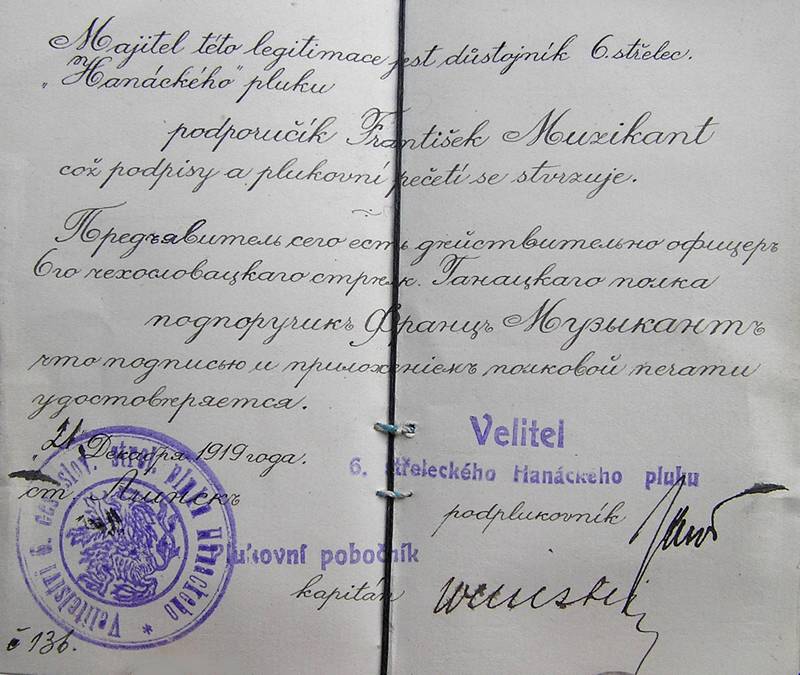 Majitel této legitimace jest důstojník 6. střelec.
„Hanáckého" pluku
podporučík František Muzikant
což podpisy a plukovní pečetí se stvrzuje.
Предъявитель сего есть дѣйствительно офицеръ
6го чехословацкаго стрѣлк. Ганацкаго полка
подпоручикъ Францъ Музыкантъ
что подписью и приложенiемъ полковой печати
удостовѣряется.
„21 Декабря 1919 года.
ст. Ачинскъ
Velitel
6. střeleckého Hanáckého pluku
podplukovník
Plukovní pobočník
kapitán
Velitelství 6. českoslov. střel. pluku Hanáckého *
č 136.